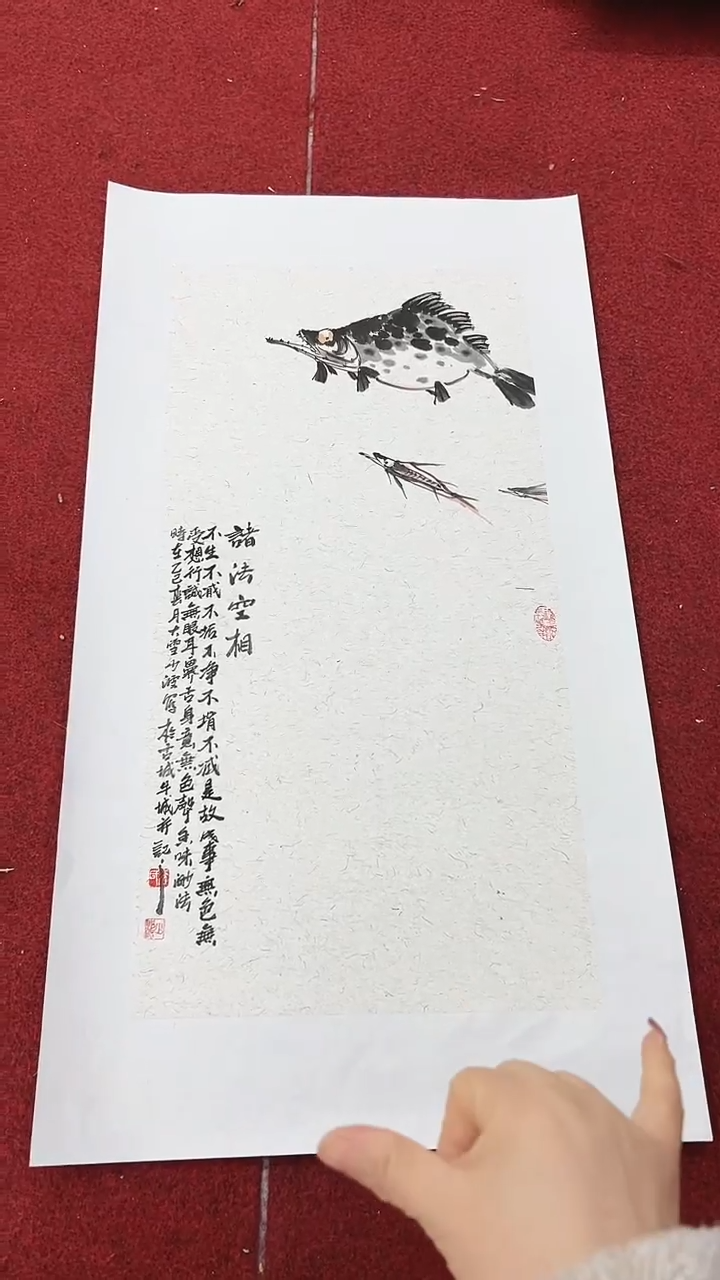 諸法空相
不生不滅不垢不净不增不减是故空中無色無
受想行識無眼耳鼻舌身意無色聲香味触法
時在乙巳年月大雪少波写於古城牛城并記